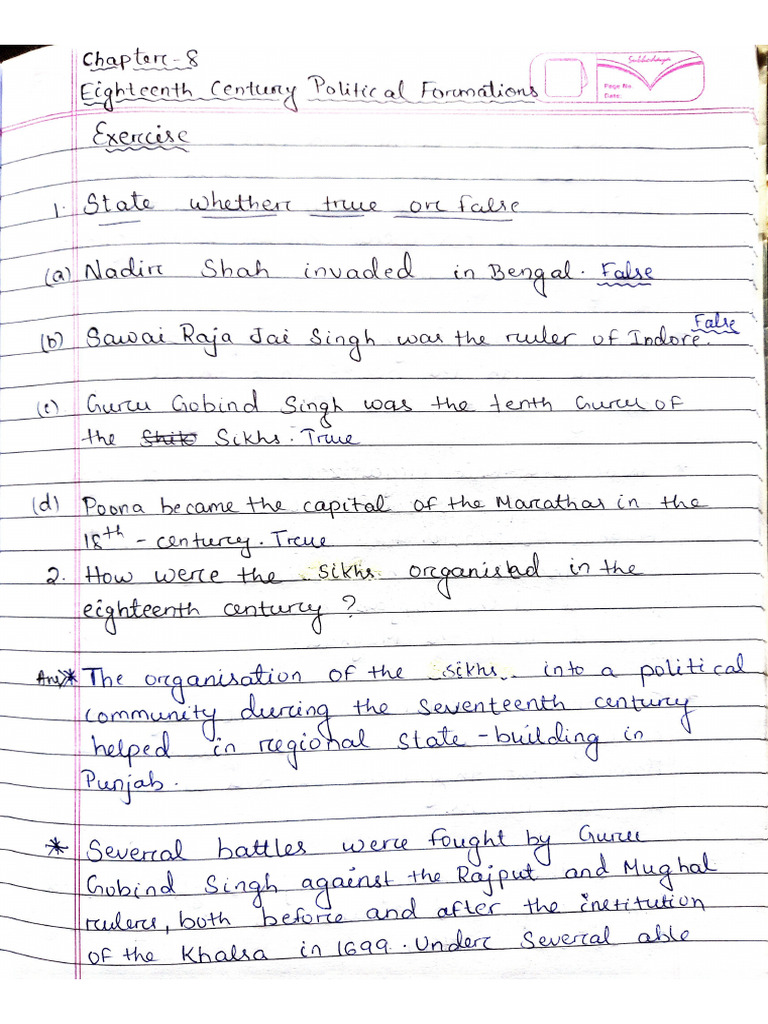 Chapter-8
Eighteenth Century Political Formations
Page No.
Date:
Exercise
1. State whether true or false
(a) Nadir Shah invaded in Bengal. False
(b) Sawai Raja Jai Singh was the ruler of Indore. False
(c) Guru Gobind Singh was the tenth Guru of
the Sikhs. True
(d) Poona became the capital of the Marathas in the
18th - century. True
2. How were the sikhs organised in the
eighteenth century ?
Ans * The organisation of the sikhs into a political
community during the seventeenth century
helped in regional state-building in
Punjab.
* Several battles were fought by Guru
Gobind Singh against the Rajput and Mughal
rulers, both before and after the institution
of the Khalsa in 1699. Under Several able